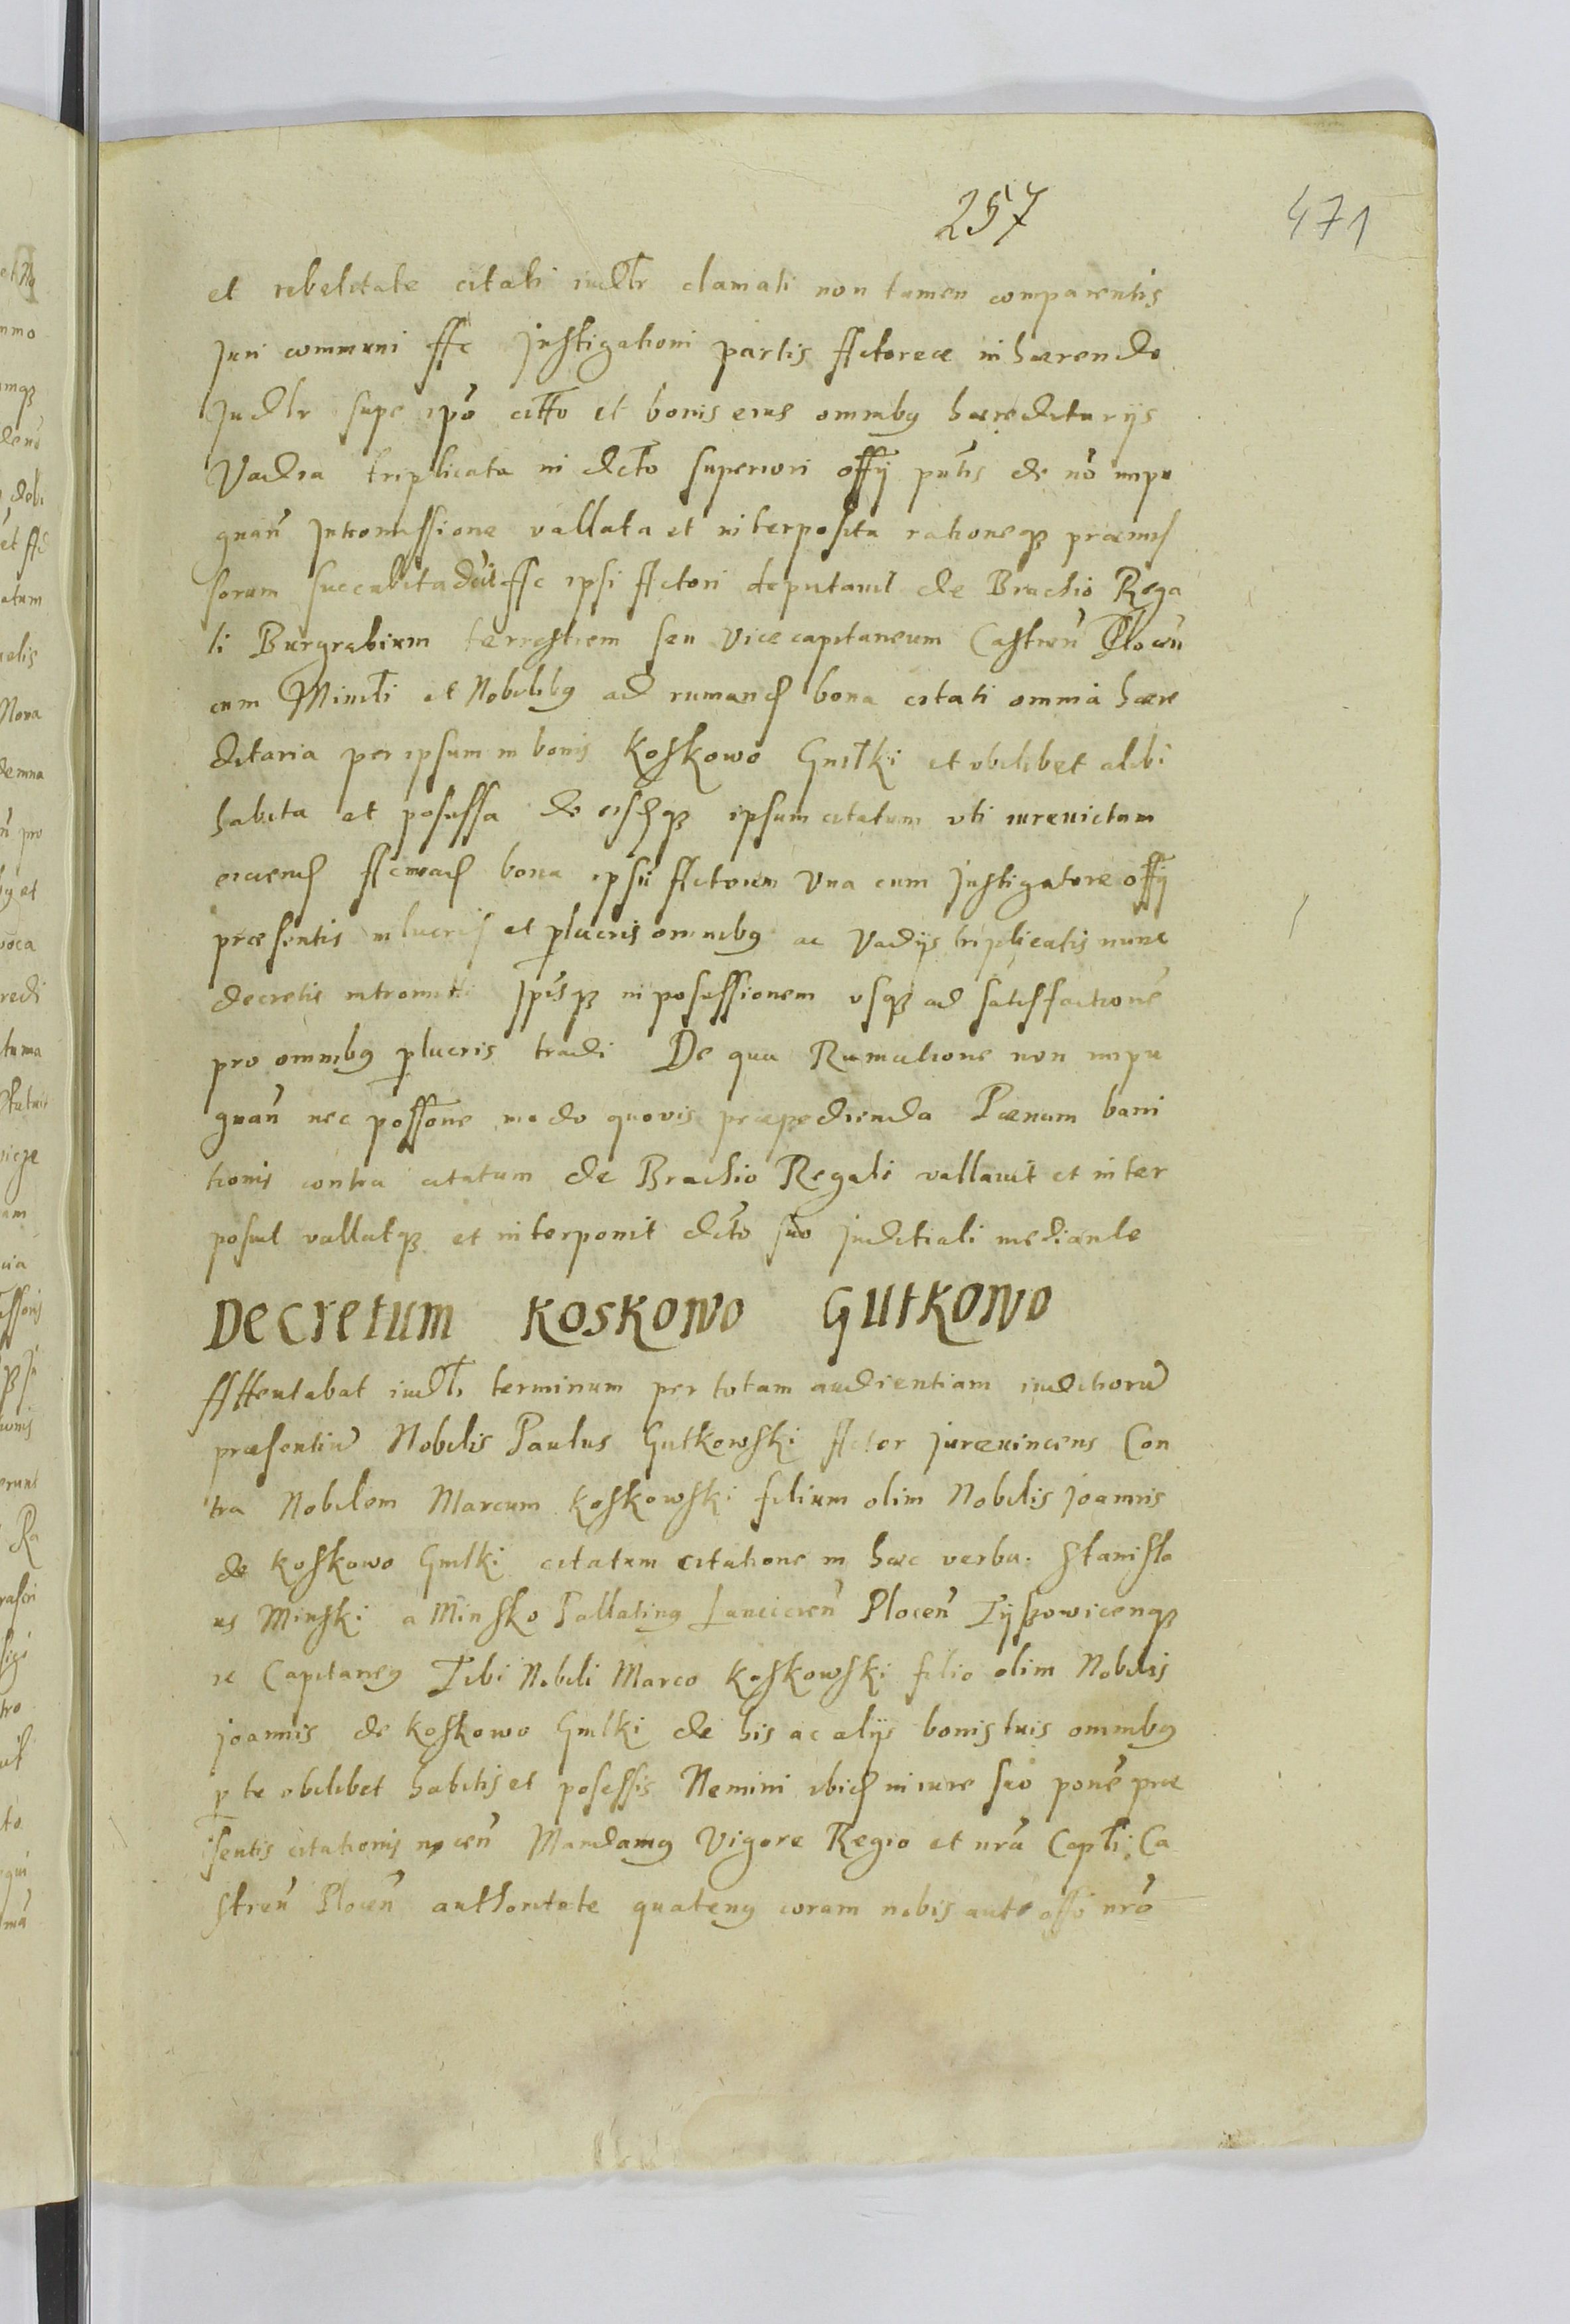 257
471
et rebelitate citati iudtr clamati non tamen comparentis
Juri communi Ac Jnstigationi partis Actoreæ inhærendo
Judtr supe ipō citto et bonis eius omnibq hæreditarijs
Vadia triplicata in dcto superiori offij pntis de nō impu
gnan̄ Intromissione vallata et interposita rationeqз præmis
sorum succubita Ac ipsi Actori deputauit de Brachio Rega
li Burgrabium terrestrem seu Vicecapitaneum Castren̄ Plocen̄
cum Minrli et Nobilibq ad rumand bona citati omnia hære
ditaria per ipsum in bonis Koskowo Gmlki et vbilibet alibi
habita et possessa de eisdqз ipsum citatum vti iureuictum
eiciend Ac in ead bona ipsū Actorem Vna cum Jnstigatore offij
præsentis in lucris et plucris omnibq ac Vadijs triplicatis nunc
decretis intromitti Jpisqз in possessionem vsqз ad satisfactionē
pro omnibq plucris tradi De qua Rumatione non impu
gnan̄ nec possone modo quovis præpedienda Pænam bani
tionis contra citatum de Brachio Regali vallauit et inter
posuit vallatqз et interponit dcto suo juditiali mediante
Decretum Koskowo Gutkowo
Attentabat iudtr terminum per totam audientiam iuditiorū
præsentiū Nobilis Paulus Gutkowski Actor jurevincens Con
tra Nobilem Marcum Koskowski filium olim Nobilis Joannis
de Koskowo Gmlki citatum citatione in hæc verba. Stanisla
us Minski a Minsko Pallatinq Lancicien̄ Plocen̄ Tyssowicenqз
Capitaneq Tibi Nobili Marco Koskowski filio olim Nobilis
Joannis de Koskowo Gmlki de his ac alijs bonis tuis omnibq
p te vbilibet habitis et possessis Nemini ibid in iure suo ponē præ
sentis citationis nocen̄ Mandamq Vigore Regio et nrā Captli Ca
stren̄ Plocen̄ authoritate quatenq coram nobis aut offō nrō